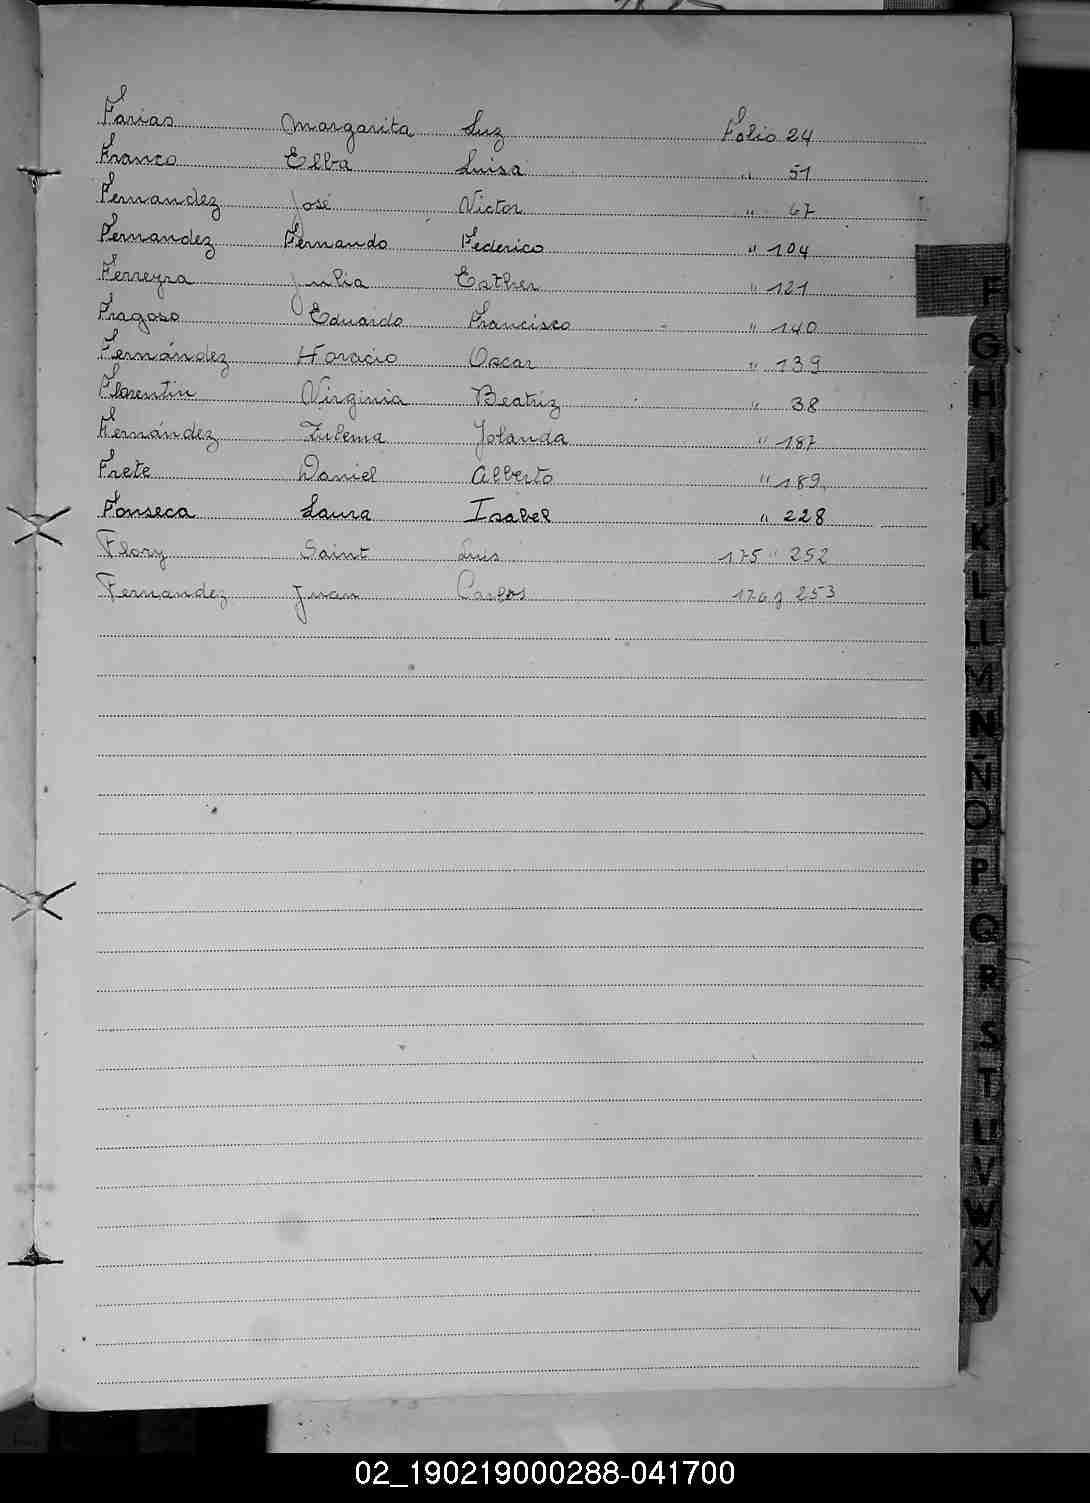 Farias Margarita Luz Folio 24
Franco Elba Luisa " 51
Fernandez José Victor " 67
Fernandez Fernando Federico " 104
Ferreyra Julia Esther " 121
Fragoso Eduardo Francisco " 140
Fernández Horacio Oscar " 139
Florentin Virginia Beatriz " 38
Fernández Zulema Yolanda " 187
Frete Daniel Alberto " 189
Fonseca Laura Isabel " 228
Flory Saint Luis 175 " 252
Fernandez Juan Carlos 176 f 253
F
G
H
I
J
K
L
LL
M
N
Ñ
O
P
Q
R
S
T
U
V
W
X
Y
02_190219000288-041700